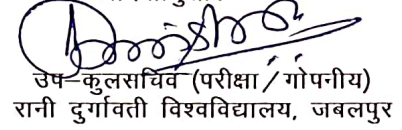 उप–कुलसचिव (परीक्षा / गोपनीय)
रानी दुर्गावती विश्वविद्यालय, जबलपुर